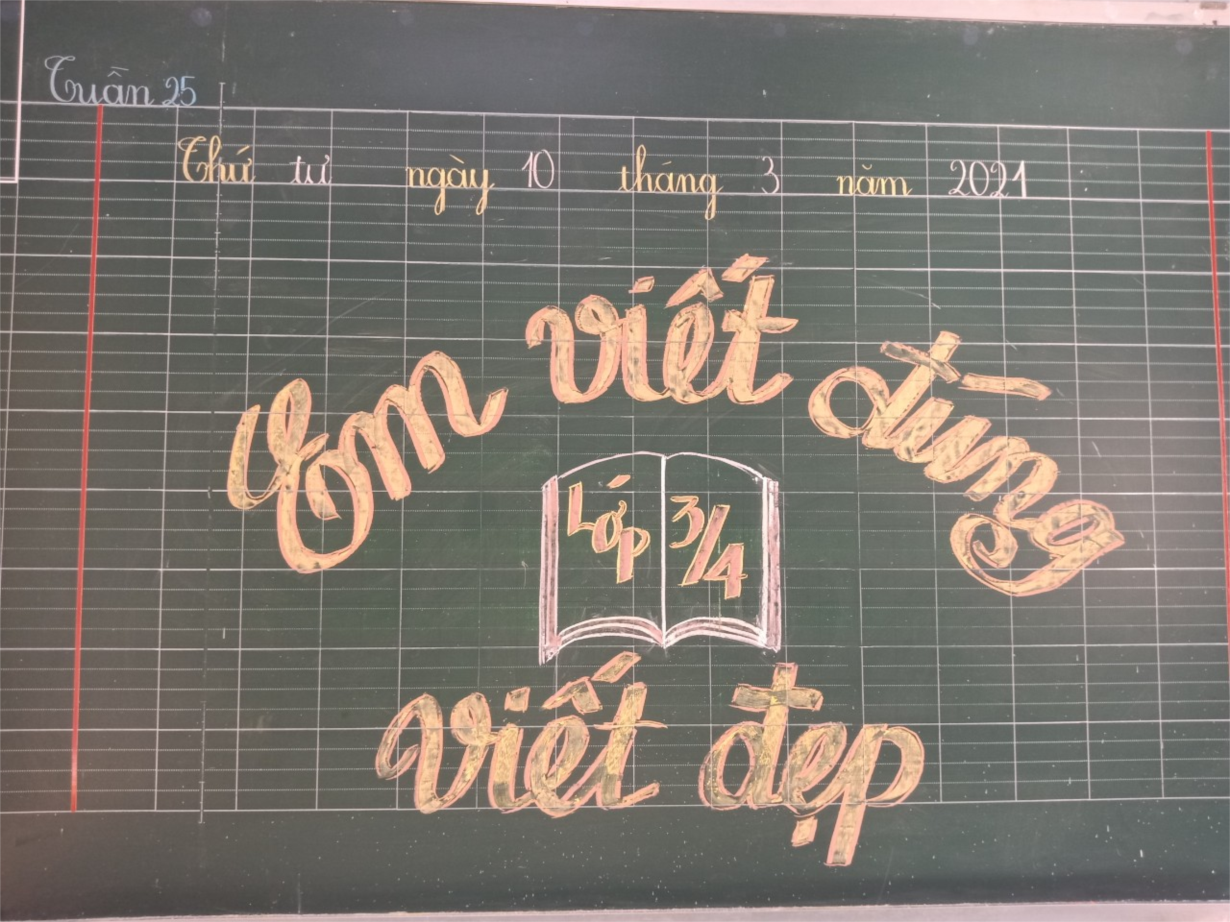 Tuần 25
Thứ tư ngày 10 tháng 3 năm 2021
Em viết đúng
Lớp 3/4
viết đẹp